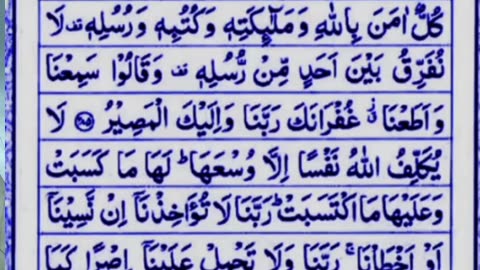 كُلٌّ اٰمَنَ بِاللّٰهِ وَمَلٰٓئِكَتِهٖ وَكُتُبِهٖ وَرُسُلِهٖ ۟ لَا
نُفَرِّقُ بَيْنَ اَحَدٍ مِّنْ رُّسُلِهٖ ۟ وَقَالُوْا سَمِعْنَا
وَاَطَعْنَا ۗ غُفْرَانَكَ رَبَّنَا وَاِلَيْكَ الْمَصِيْرُ ﴿۲۸۵﴾ لَا
يُكَلِّفُ اللّٰهُ نَفْسًا اِلَّا وُسْعَهَا ؕ لَهَا مَا كَسَبَتْ
وَعَلَيْهَا مَا اكْتَسَبَتْ ؕ رَبَّنَا لَا تُؤَاخِذْنَاۤ اِنْ نَّسِيْنَاۤ
اَوْ اَخْطَاْنَا ۚ رَبَّنَا وَلَا تَحْمِلْ عَلَيْنَاۤ اِصْرًا كَمَا